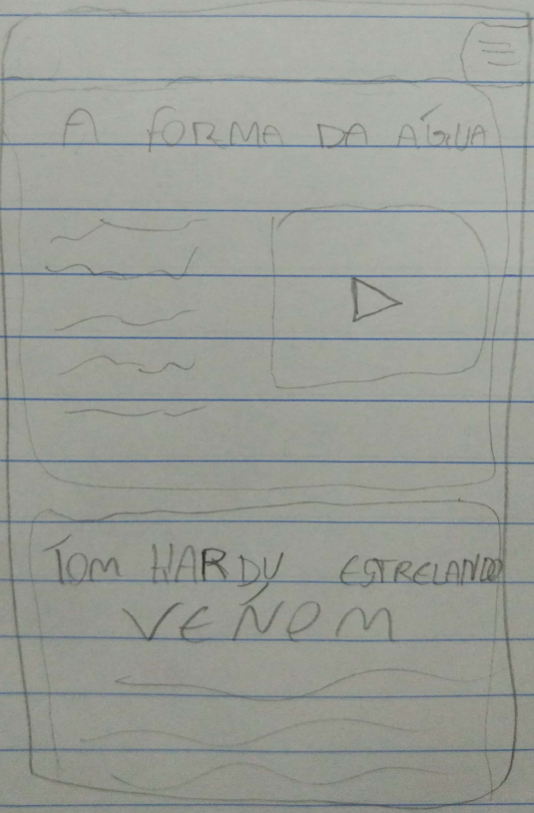 A FORMA DA ÁGUA
TOM HARDY ESTRELANDO
VENOM